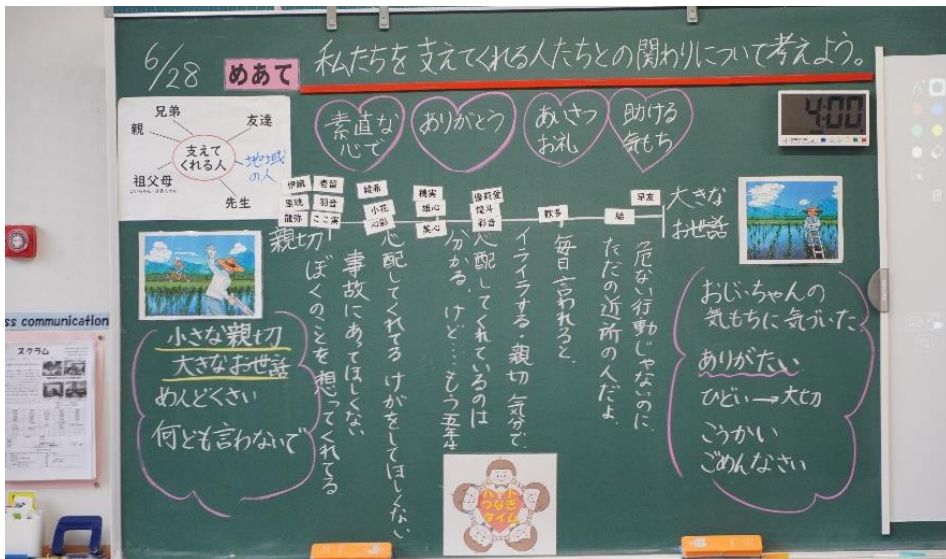 6/28
めあて
私たちを支えてくれる人たちとの関わりについて考えよう。
兄弟
親
友達
支えて
くれる人
地域
の人
祖父母
先生
素直な
心で
ありがとう
あいさつ
お礼
助ける
気もち
4:00
羽音
ここ実
綾希
小花
心彩
穂実
雄心
笑心
優莉愛
煌斗
彩音
歓多
結
早友
親切
大きな
お世話
危ない行動じゃないのに
ただの近所の人だよ
毎日言われると、
イライラする・親切 気分で
心配してくれているのは
分かる。けど…もう五年生
心配してくれてる けがをしてほしくない
事故にあってほしくない
ぼくのことを想ってくれてる
小さな親切
大きなお世話
めんどくさい
何ども言わないで
おじいちゃんの
気もちに気づいた
ありがたい
ひどい→大切
こうかい
ごめんなさい
ハート
つなぎ
タイム
ss communication
スクラム